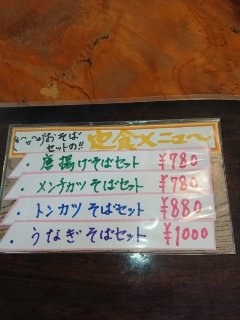 おそば
セットの!!
定食メニュー
・唐揚げそばセット ¥780
・メンチカツそばセット ¥780
・トンカツそばセット ¥880
・うなぎそばセット ¥1000